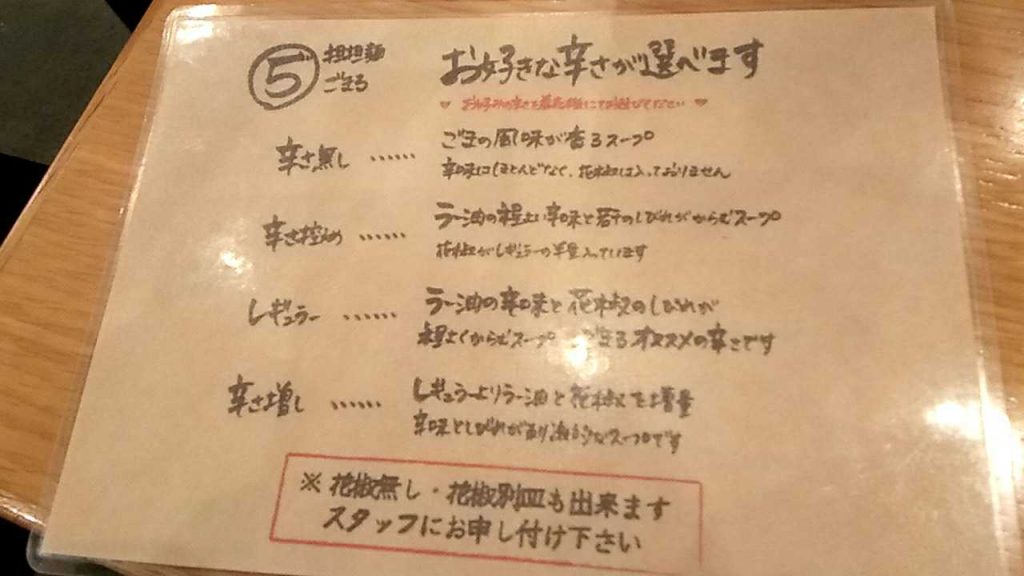 ⑤ 担担麺 ごまる
お好きな辛さが選べます
♥ お好みの辛さを にてお選びください ♥
辛さ無し ‥‥‥ ごまの風味が香るスープ
辛味はほとんどなく、花椒は入っておりません
辛さ控め ‥‥‥ ラー油の程よい辛味と若干のしびれがからむスープ
花椒がレギュラーの半量入っています
レギュラー ‥‥‥ ラー油の辛味と花椒のしびれが
程よくからむスープ ごまるオススメの辛さです
辛さ増し ‥‥‥ レギュラーよりラー油と花椒を増量
辛味としびれがより刺激的なスープです
※ 花椒無し・花椒別皿も出来ます
スタッフにお申し付け下さい